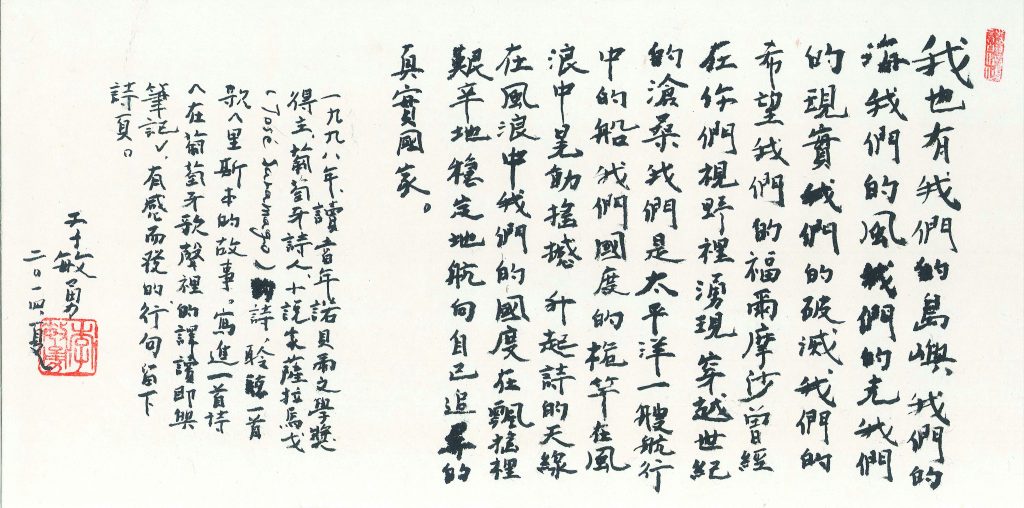 我也有我們的島嶼我們的
海我們的風我們的光我們
的現實我們的破滅我們的
希望我們的福爾摩沙曾經
在你們視野裡湧現穿越世紀
的滄桑我們是太平洋一艘航行
中的船我們國度的桅竿在風
浪中晃動搖撼 升起詩的天線
在風浪中我們的國度在飄搖裡
艱辛地穩定地航向自己追尋的
真實國家。
一九九八年、讀當年諾貝爾文學獎
得主、葡萄牙詩人、小說家薩拉馬戈
(Jose Saramago)詩、聆聽一首
歌〈里斯本的故事〉。寫進一首詩
〈在葡萄牙歌聲裡的譯讀即興
筆記〉、有感而發的行句留下
詩頁。
李敏勇
二〇一四、夏。
李敏勇